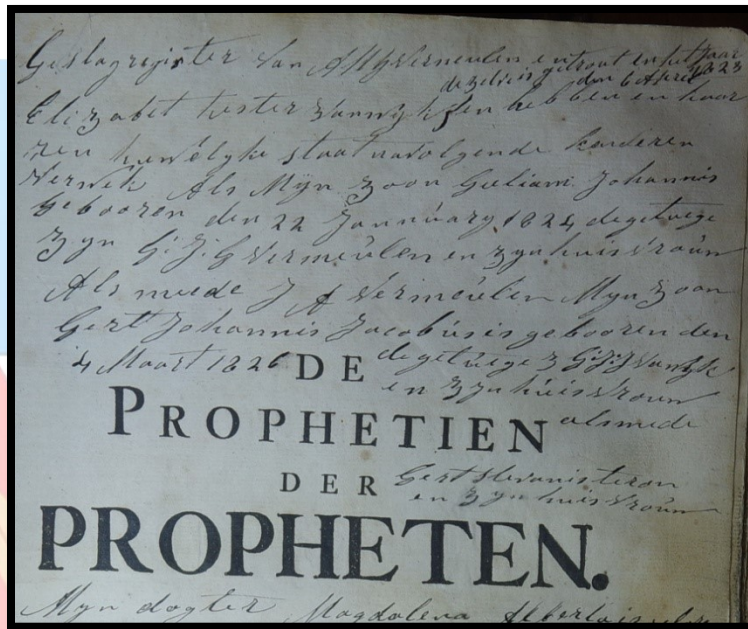 Geslagregister van A M G Vermeulen en getrout en het Jaar 1823
dezelve is getrout den 6 April
Elizabet Hester Vanwyk en hebben en haar
zen huwelyke staat navolgende kenderen
Verwek Als Myn zoon Guliam Johannis
Gebooren den 22 Jannúary 1824 de getuege
Zyn G. J. G Vermeúlen en zyn huis Vroúw
Als meede J A Vermeúlen Myn zoon
Gert Johannis Jacobús is gebooren den
4 Maart 1826 de getúege z G. J. J Vanyk
en zyn húis Vrouw
alsmede
DE
PROPHETIEN
DER
Gert
en zyn huis Vroúw
PROPHETEN.
Myn dogter Magdalena